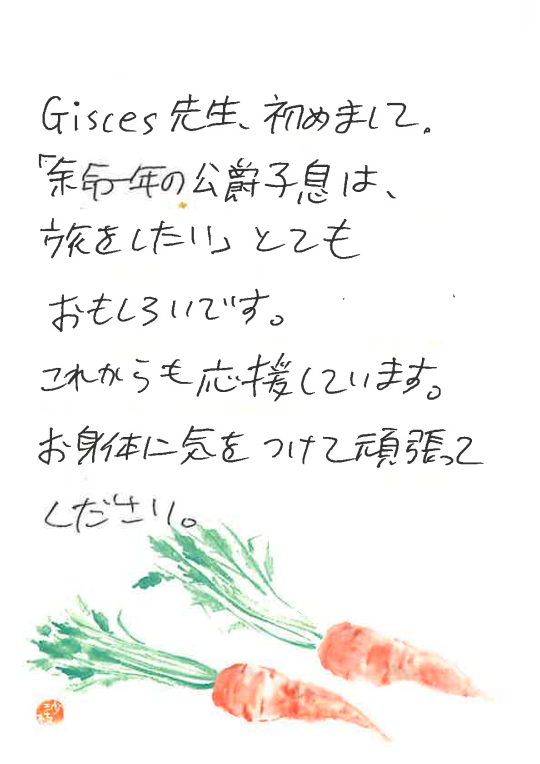 Gisces先生、初めまして。
「余命一年の公爵子息は、
旅をしたい」とても
おもしろいです。
これからも応援しています。
お身体に気をつけて頑張って
ください。